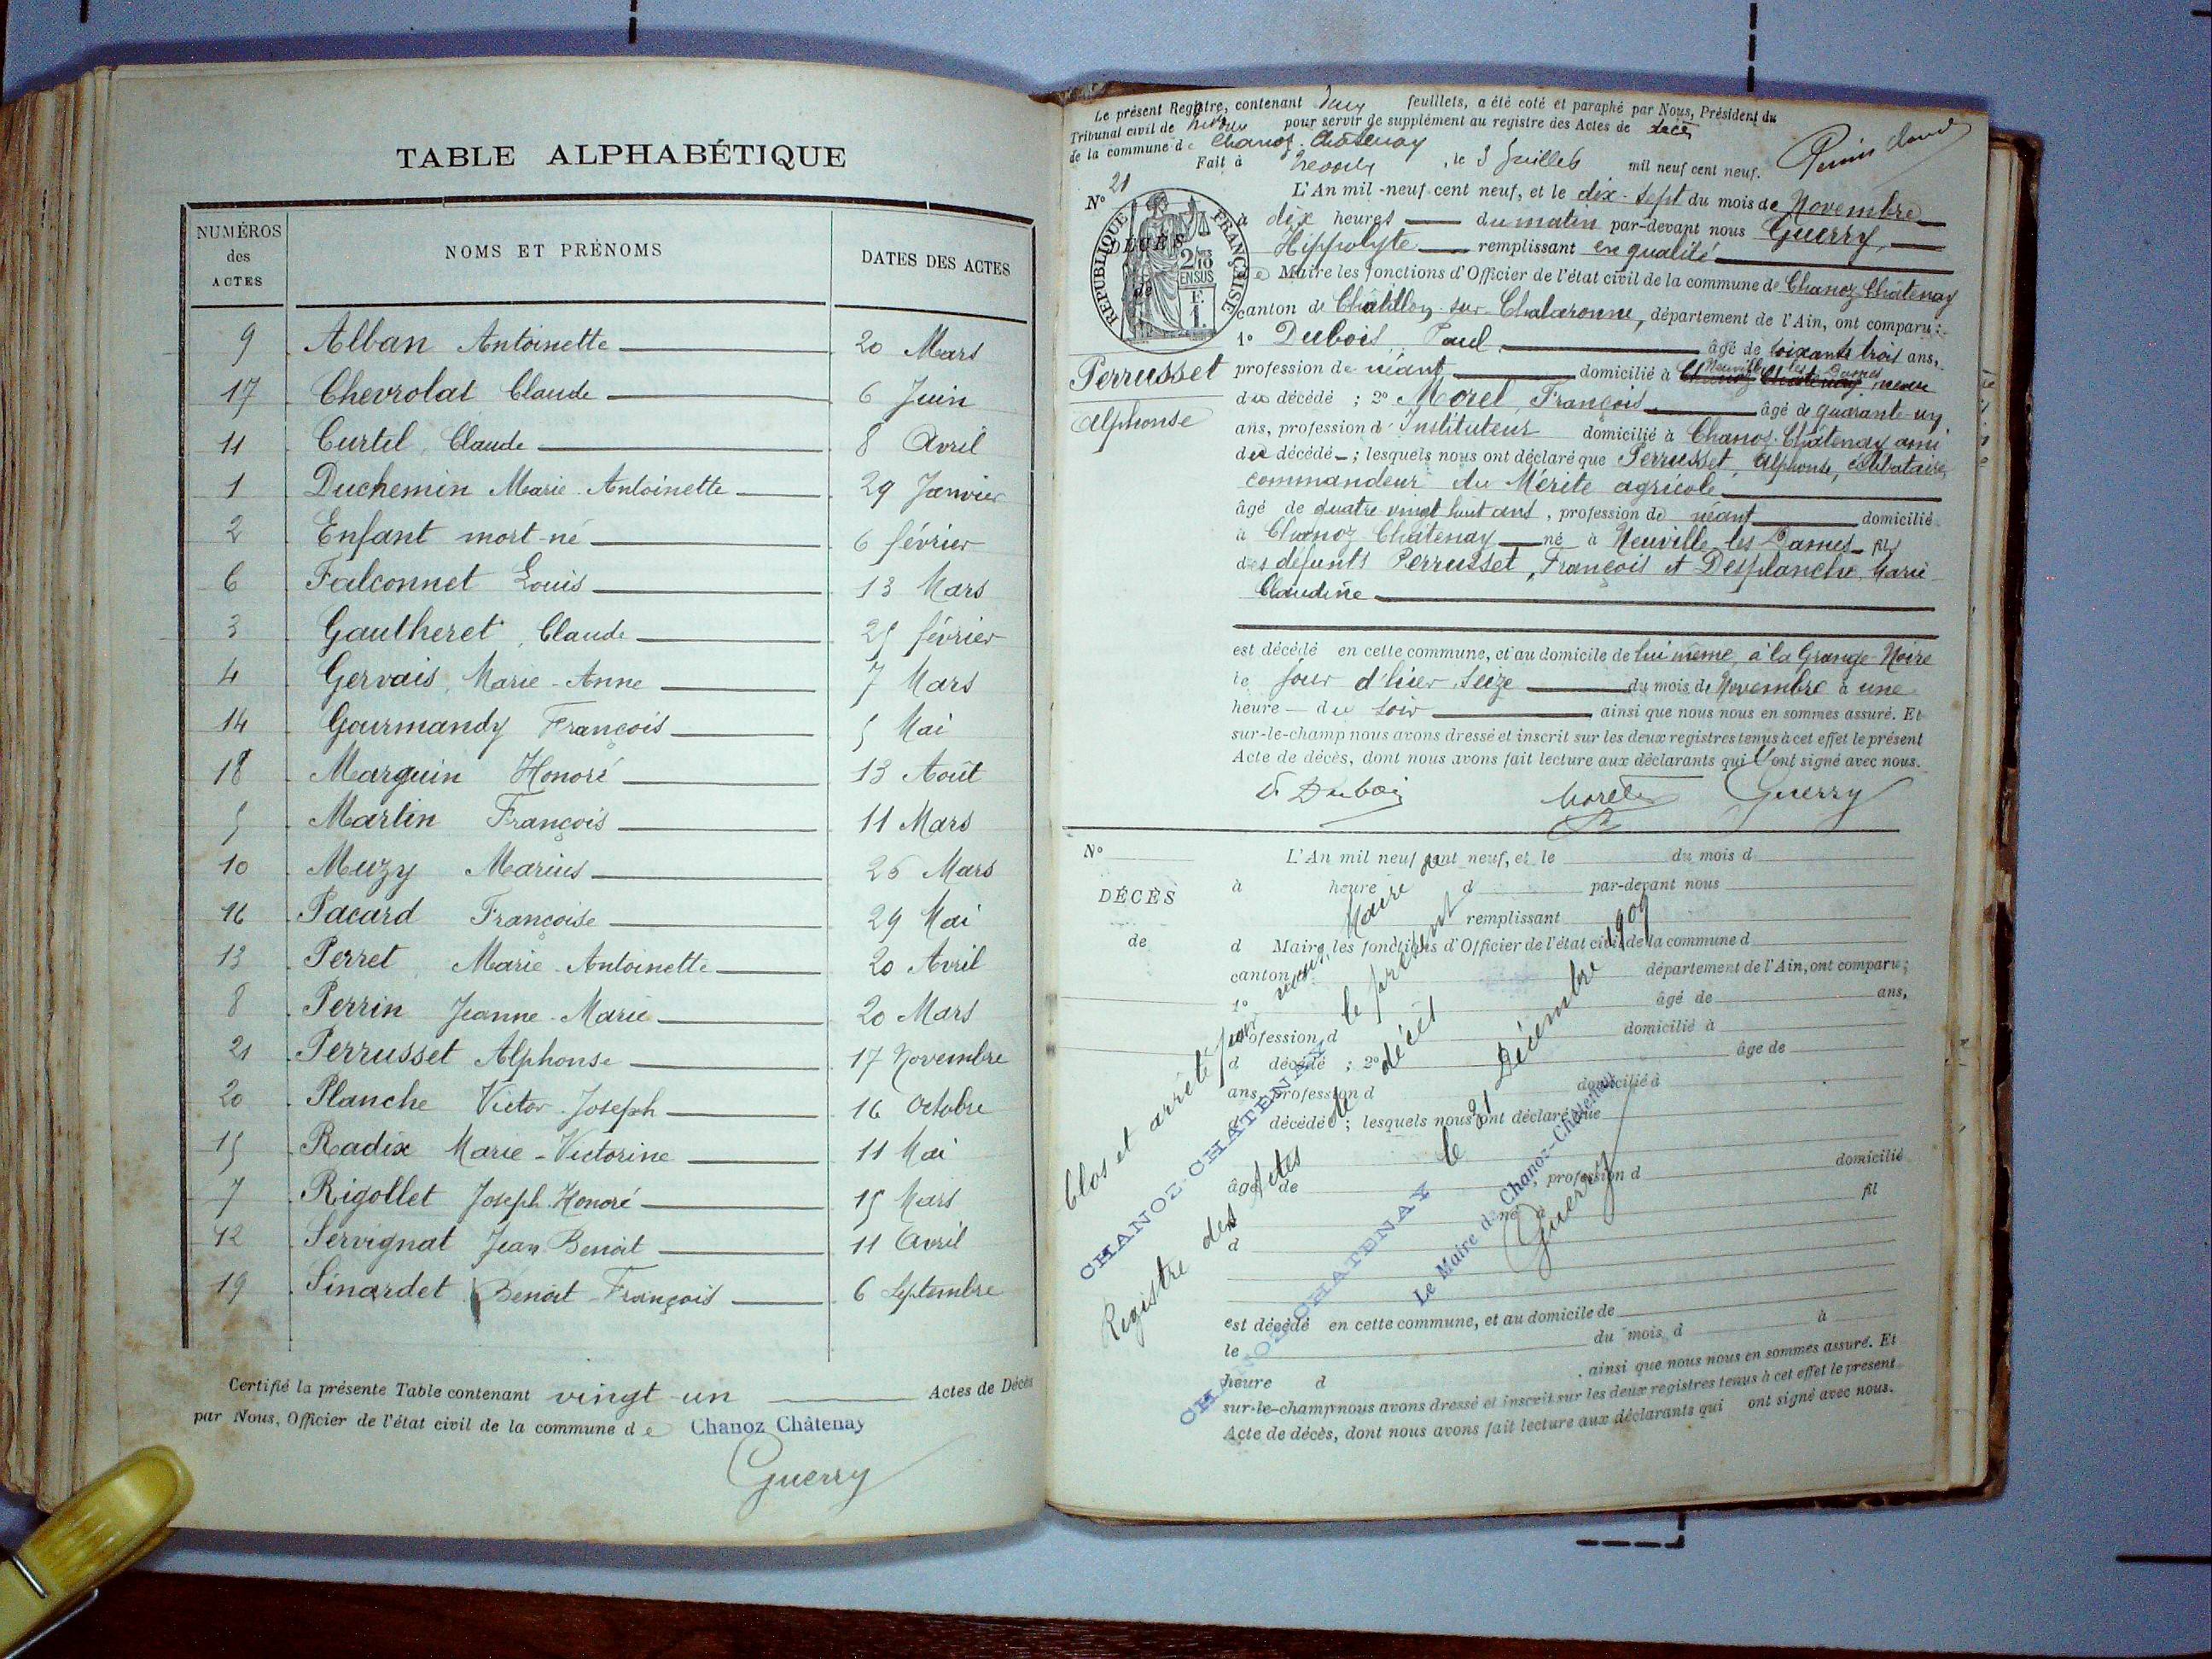 TABLE ALPHABÉTIQUE
NUMÉROS des ACTES
NOMS ET PRÉNOMS
DATES DES ACTES
9 Alban Antoinette 20 Mars
17 Chevrolat Claude 6 Juin
11 Curtel, Claude 8 Avril
1 Duchemin Marie-Antoinette 29 Janvier
2 Enfant mort-né 6 février
6 Falconnet Louis 13 Mars
3 Gautheret, Claude 25 février
4 Gervais, Marie-Anne 7 Mars
14 Gourmandy François 5 Mai
18 Marguin Honoré 13 Août
5 Martin François 11 Mars
10 Muzy Marius 26 Mars
16 Pacard Françoise 29 Mai
13 Perret Marie-Antoinette 20 Avril
8 Perrin Jeanne-Marie 20 Mars
21 Perrusset Alphonse 17 Novembre
20 Planche Victor-Joseph 16 Octobre
15 Radix Marie-Victorine 11 Mai
7 Rigollet Joseph-Honoré 15 Mars
12 Servignat Jean-Benoit 11 Avril
19 Sinardet Benoit-François 6 Septembre
Certifié la présente Table contenant vingt un Actes de Décès
par Nous, Officier de l'état civil de la commune de Chanoz Châtenay
Guerry
Le présent Registre, contenant deux feuillets, a été coté et paraphé par Nous, Président du
Tribunal civil de Trévoux pour servir de supplément au registre des Actes de décès
de la commune de Chanoz-Châtenay
Fait à Trévoux, le 3 Juillet mil neuf cent neuf.
N° 21
RÉPUBLIQUE FRANÇAISE
2/10 EN SUS
DÉCÈS
de
Perrusset
Alphonse
L'An mil-neuf-cent neuf, et le dix-sept du mois de Novembre
à dix heures du matin par-devant nous Guerry,
Hippolyte remplissant en qualité
de Maire les fonctions d'Officier de l'état civil de la commune de Chanoz-Châtenay
canton de Châtillon-sur-Chalaronne, département de l'Ain, ont comparu :
1° Dubois, Paul, âgé de soixante trois ans,
profession de néant domicilié à Chanoz Châtenay Neuville les Dames neveu
du décédé ; 2° Morel, François, âgé de quarante-un
ans, profession d'Instituteur domicilié à Chanoz-Châtenay ami
du décédé ; lesquels nous ont déclaré que Perrusset, Alphonse, célibataire,
commandeur du Mérite agricole
âgé de quatre vingt huit ans, profession de néant domicilié
à Chanoz-Châtenay né à Neuville-les-Dames fils
des défunts Perrusset, François et Desplanche, Marie
Claudine
est décédé en cette commune, et au domicile de lui même, à la Grange-Noire
le jour d'hier, seize du mois de Novembre à une
heure du soir ainsi que nous nous en sommes assuré. Et
sur-le-champ nous avons dressé et inscrit sur les deux registres tenus à cet effet le présent
Acte de décès, dont nous avons fait lecture aux déclarants qui l'ont signé avec nous.
P. Dubois Morel Guerry
N°
DÉCÈS
de
L'An mil neuf cent neuf, et le du mois d
à heure d par-devant nous
remplissant
d Maire, les fonctions d'Officier de l'état civil de la commune d
canton département de l'Ain, ont comparu ;
1° âgé de ans,
profession d domicilié à
d décédé ; 2° âgé de
ans, profession d domicilié à
d décédé ; lesquels nous ont déclaré que
âgé de profession d domicilié
né à fil
d
est décédé en cette commune, et au domicile de
le du mois d à
heure d ainsi que nous nous en sommes assuré. Et
sur-le-champ nous avons dressé et inscrit sur les deux registres tenus à cet effet le présent
Acte de décès, dont nous avons fait lecture aux déclarants qui ont signé avec nous.
Clos et arrêté par nous, Maire de
CHANOZ-CHATENAY le présent
Registre des Actes de décès
CHANOZ-CHATENAY le 31 Décembre 1909
Le Maire de Chanoz-Châtenay
Guerry